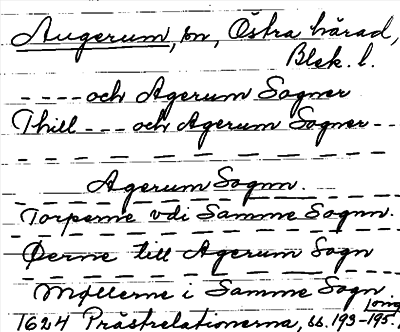 Augerum, sn, Östra härad,
Blek. l.
---- och Agerum Sogner
Thill --- och Agerum Sogner --
Agerum Sognn.
Torperne vdi Samme Sognn.
Øerne till Agerum Sogn
Møllerne i Samme Sogn
1624 Prästrelationerna, ss. 193-195.